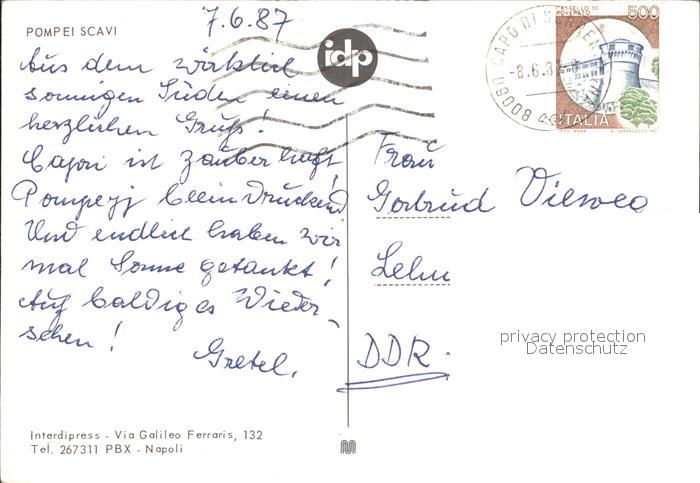 POMPEI SCAVI
7.6.87
idp
Aus dem wirklich
sonnigen Süden einen
herzlichen Gruß!
Capri ist zauberhaft,
Pompeji beeindruckend
Und endlich haben wir
mal Sonne getankt!
Auf baldiges Wieder-
sehen!
Gretel.
Frau
Gertrud Vieweg
Lehn
DDR.
CASTELLO DI
ROVERETO
500
ITALIA
80060 CAPO DI
-8.6.8
privacy protection
Datenschutz
Interdipress - Via Galileo Ferraris, 132
Tel. 267311 PBX - Napoli